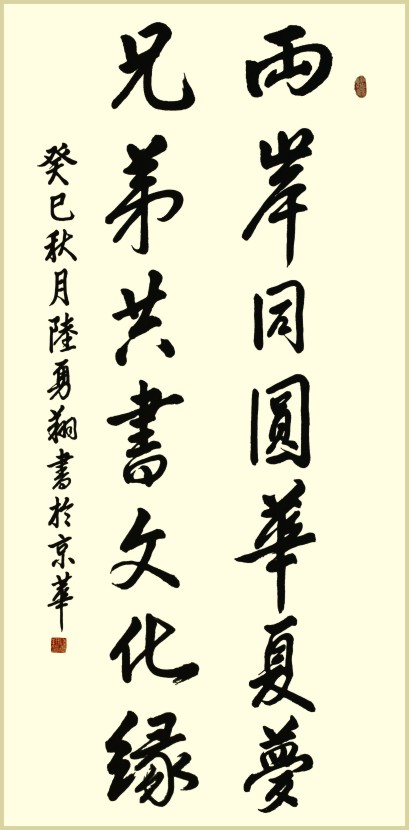 兩岸同圓華夏夢
兄弟共書文化緣
癸巳秋月陸勇翔書於京華